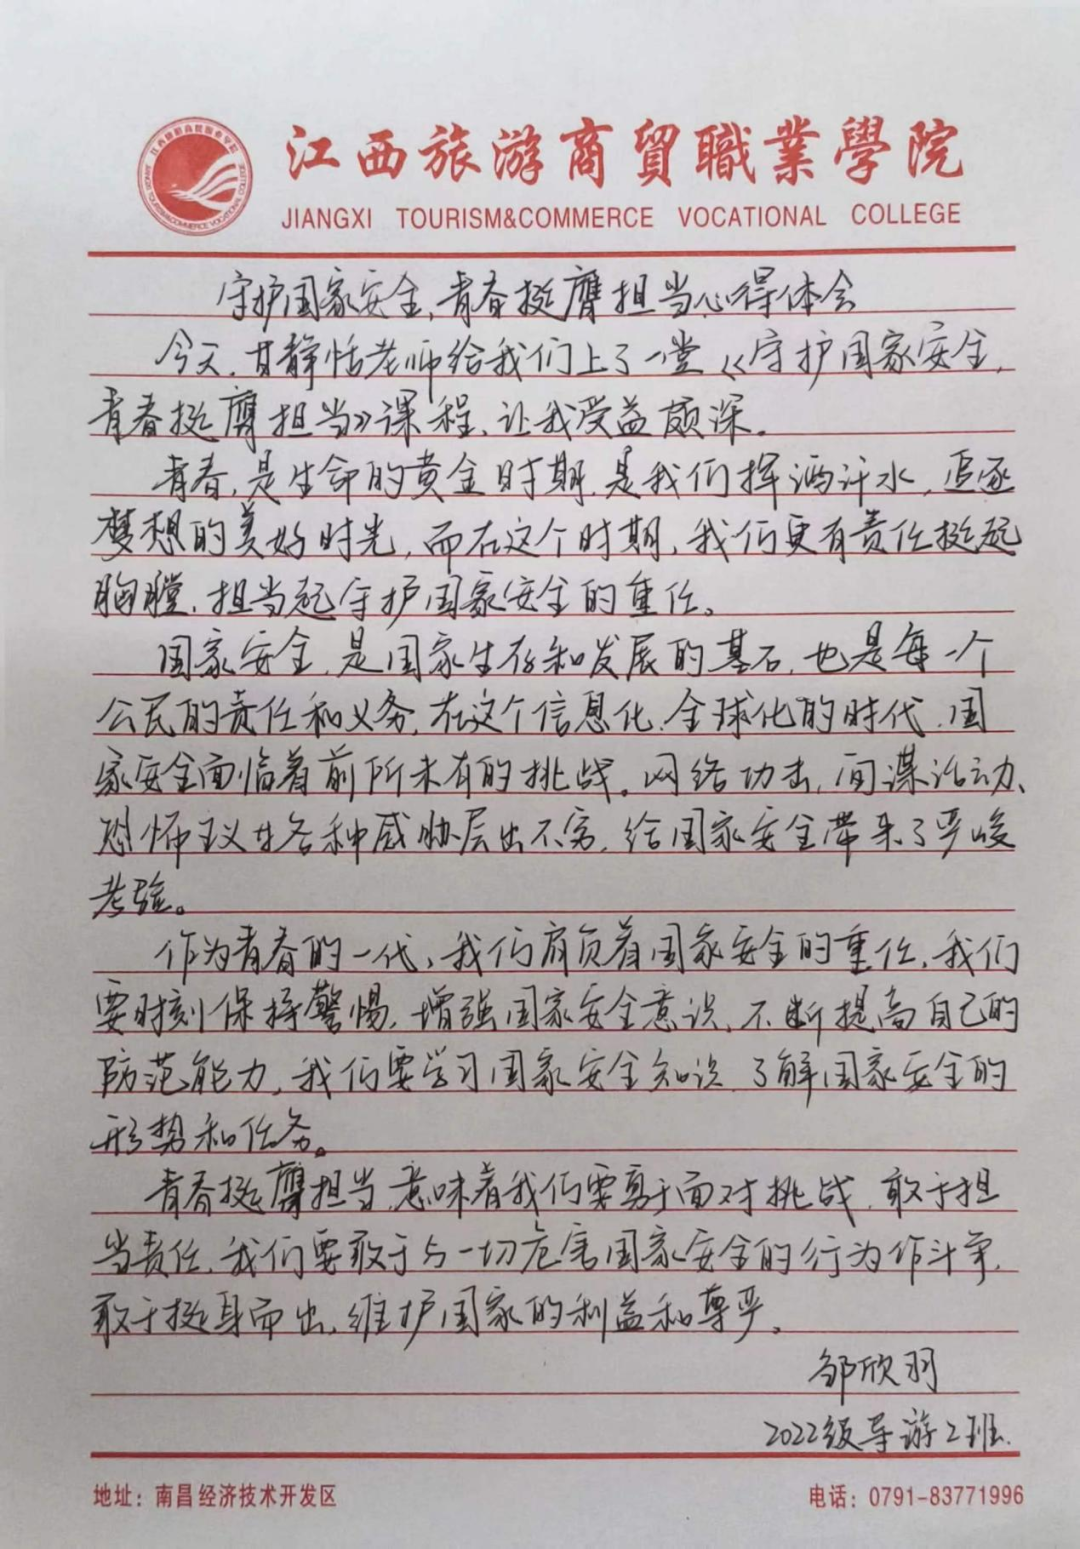 江西旅游商貿職業學院
JIANGXI TOURISM&COMMERCE VOCATIONAL COLLEGE
守护国家安全,青春挺膺担当心得体会
今天,甘静恬老师给我们上了一堂《守护国家安全,
青春挺膺担当》课程,让我受益颇深。
青春,是生命的黄金时期,是我们挥洒汗水,追逐
梦想的美好时光,而在这个时期,我们更有责任挺起
胸膛,担当起守护国家安全的重任。
国家安全,是国家生存和发展的基石,也是每一个
公民的责任和义务,在这个信息化、全球化的时代,国
家安全面临着前所未有的挑战。网络功击,间谍活动、
恐怖主义等各种威胁层出不穷,给国家安全带来了严峻
考验。
作为青春的一代,我们肩负着国家安全的重任,我们
要时刻保持警惕,增强国家安全意识,不断提高自己的
防范能力,我们要学习国家安全知识,了解国家安全的
形势和任务。
青春挺膺担当,意味着我们要勇于面对挑战,敢于担
当责任,我们要敢于与一切危害国家安全的行为作斗争,
敢于挺身而出,维护国家的利益和尊严。
邹欣羽
2022级导游2班.
地址:南昌经济技术开发区 电话:0791-83771996